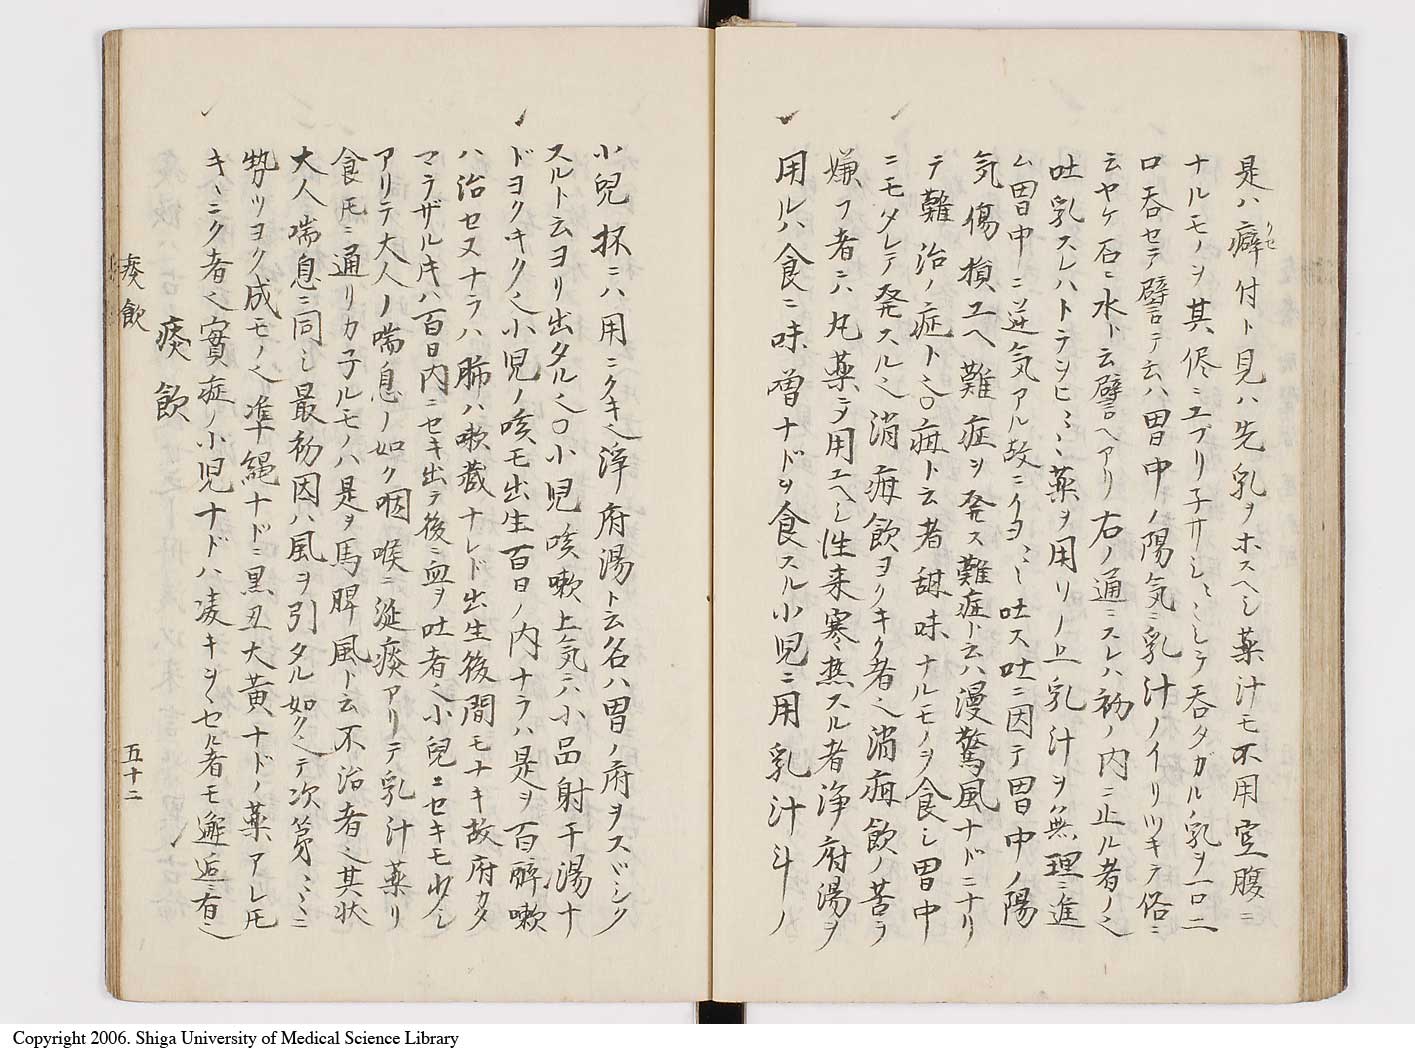 是ハ癖付ト見ハ先乳ヲホスヘシ薬汁モ不用空腹ニ
クセ
ナルモノヲ其侭ニユブリ子サシミミシテ呑タガル乳ヲ一口二
口呑セテ譬テ云ハ胃中ノ陽気ニ乳汁ノイリツキテ俗ニ
云ヤケ石ニ水ト云譬ヘアリ右ノ通ニスレハ初ノ内ニ止ル者ノ也
吐乳スレハトテヲヒミミ薬ヲ用リノ上乳汁ヲ無理ニ進
ム胃中ニ逆気アル故ニイヨミミ吐ス吐ニ因テ胃中ノ陽
気傷損ユヘ難症ヲ発ス難症ト云ハ漫驚風ナドニナリ
テ難治ノ症ト也○痗ト云者甜味ナルモノヲ食シ胃中
ニモタレテ発スル也消痗飲ヨクキク者也消痗飲ノ苦ヲ
嫌フ者ニハ丸薬ヲ用ユヘシ往来寒熱スル者浄府湯ヲ
用ルハ食ニ味噌ナドヲ食スル小児ニ用乳汁斗ノ
小兒抔ニハ用ニクキ也浄府湯ト云名ハ胃ノ府ヲスヾシク
スルト云ヨリ出タル也○小児咳嗽上気ニハ小品射干湯ナ
ドヨクキク也小児ノ咳モ出生百日ノ内ナラハ是ヲ百醉嗽
ハ治セヌナラハ肺ハ嗽蔵ナレド出生後間モナキ故府カタ
マラザル𪜈ハ百日内ニセキ出テ後ニ血ヲ吐者也小兒ニセキモ少シ
アリテ大人ノ喘息ノ如ク咽喉ニ涎痰アリテ乳汁薬リ
食𪜈ニ通リカ子ルモノハ是ヲ馬脾風ト云不治者也其状
大人喘息ニ同シ最初因ハ風ヲ引タル如クニテ次第ミミニ
勢ツヨク成モノ也準縄ナドニ黒丑大黄ナドノ薬アレ𪜈
キヽニクキ者也實症ノ小児ナドハ凌キヲヽセル者モ邂逅ニ有之
痰飲
痰飲
五十二
Copyright 2006. Shiga University of Medical Science Library